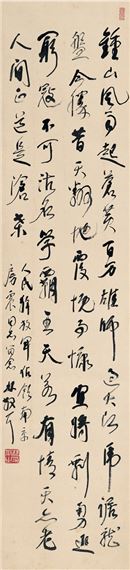 鍾山風雨起蒼黃百万雄師過大江虎踞龍
盤今勝昔天翻地覆慨而慷宜將剩勇追
窮寇不可沽名學霸王天若有情天亦老
人間正道是滄桑
人民解放軍佔領南京
房震同志